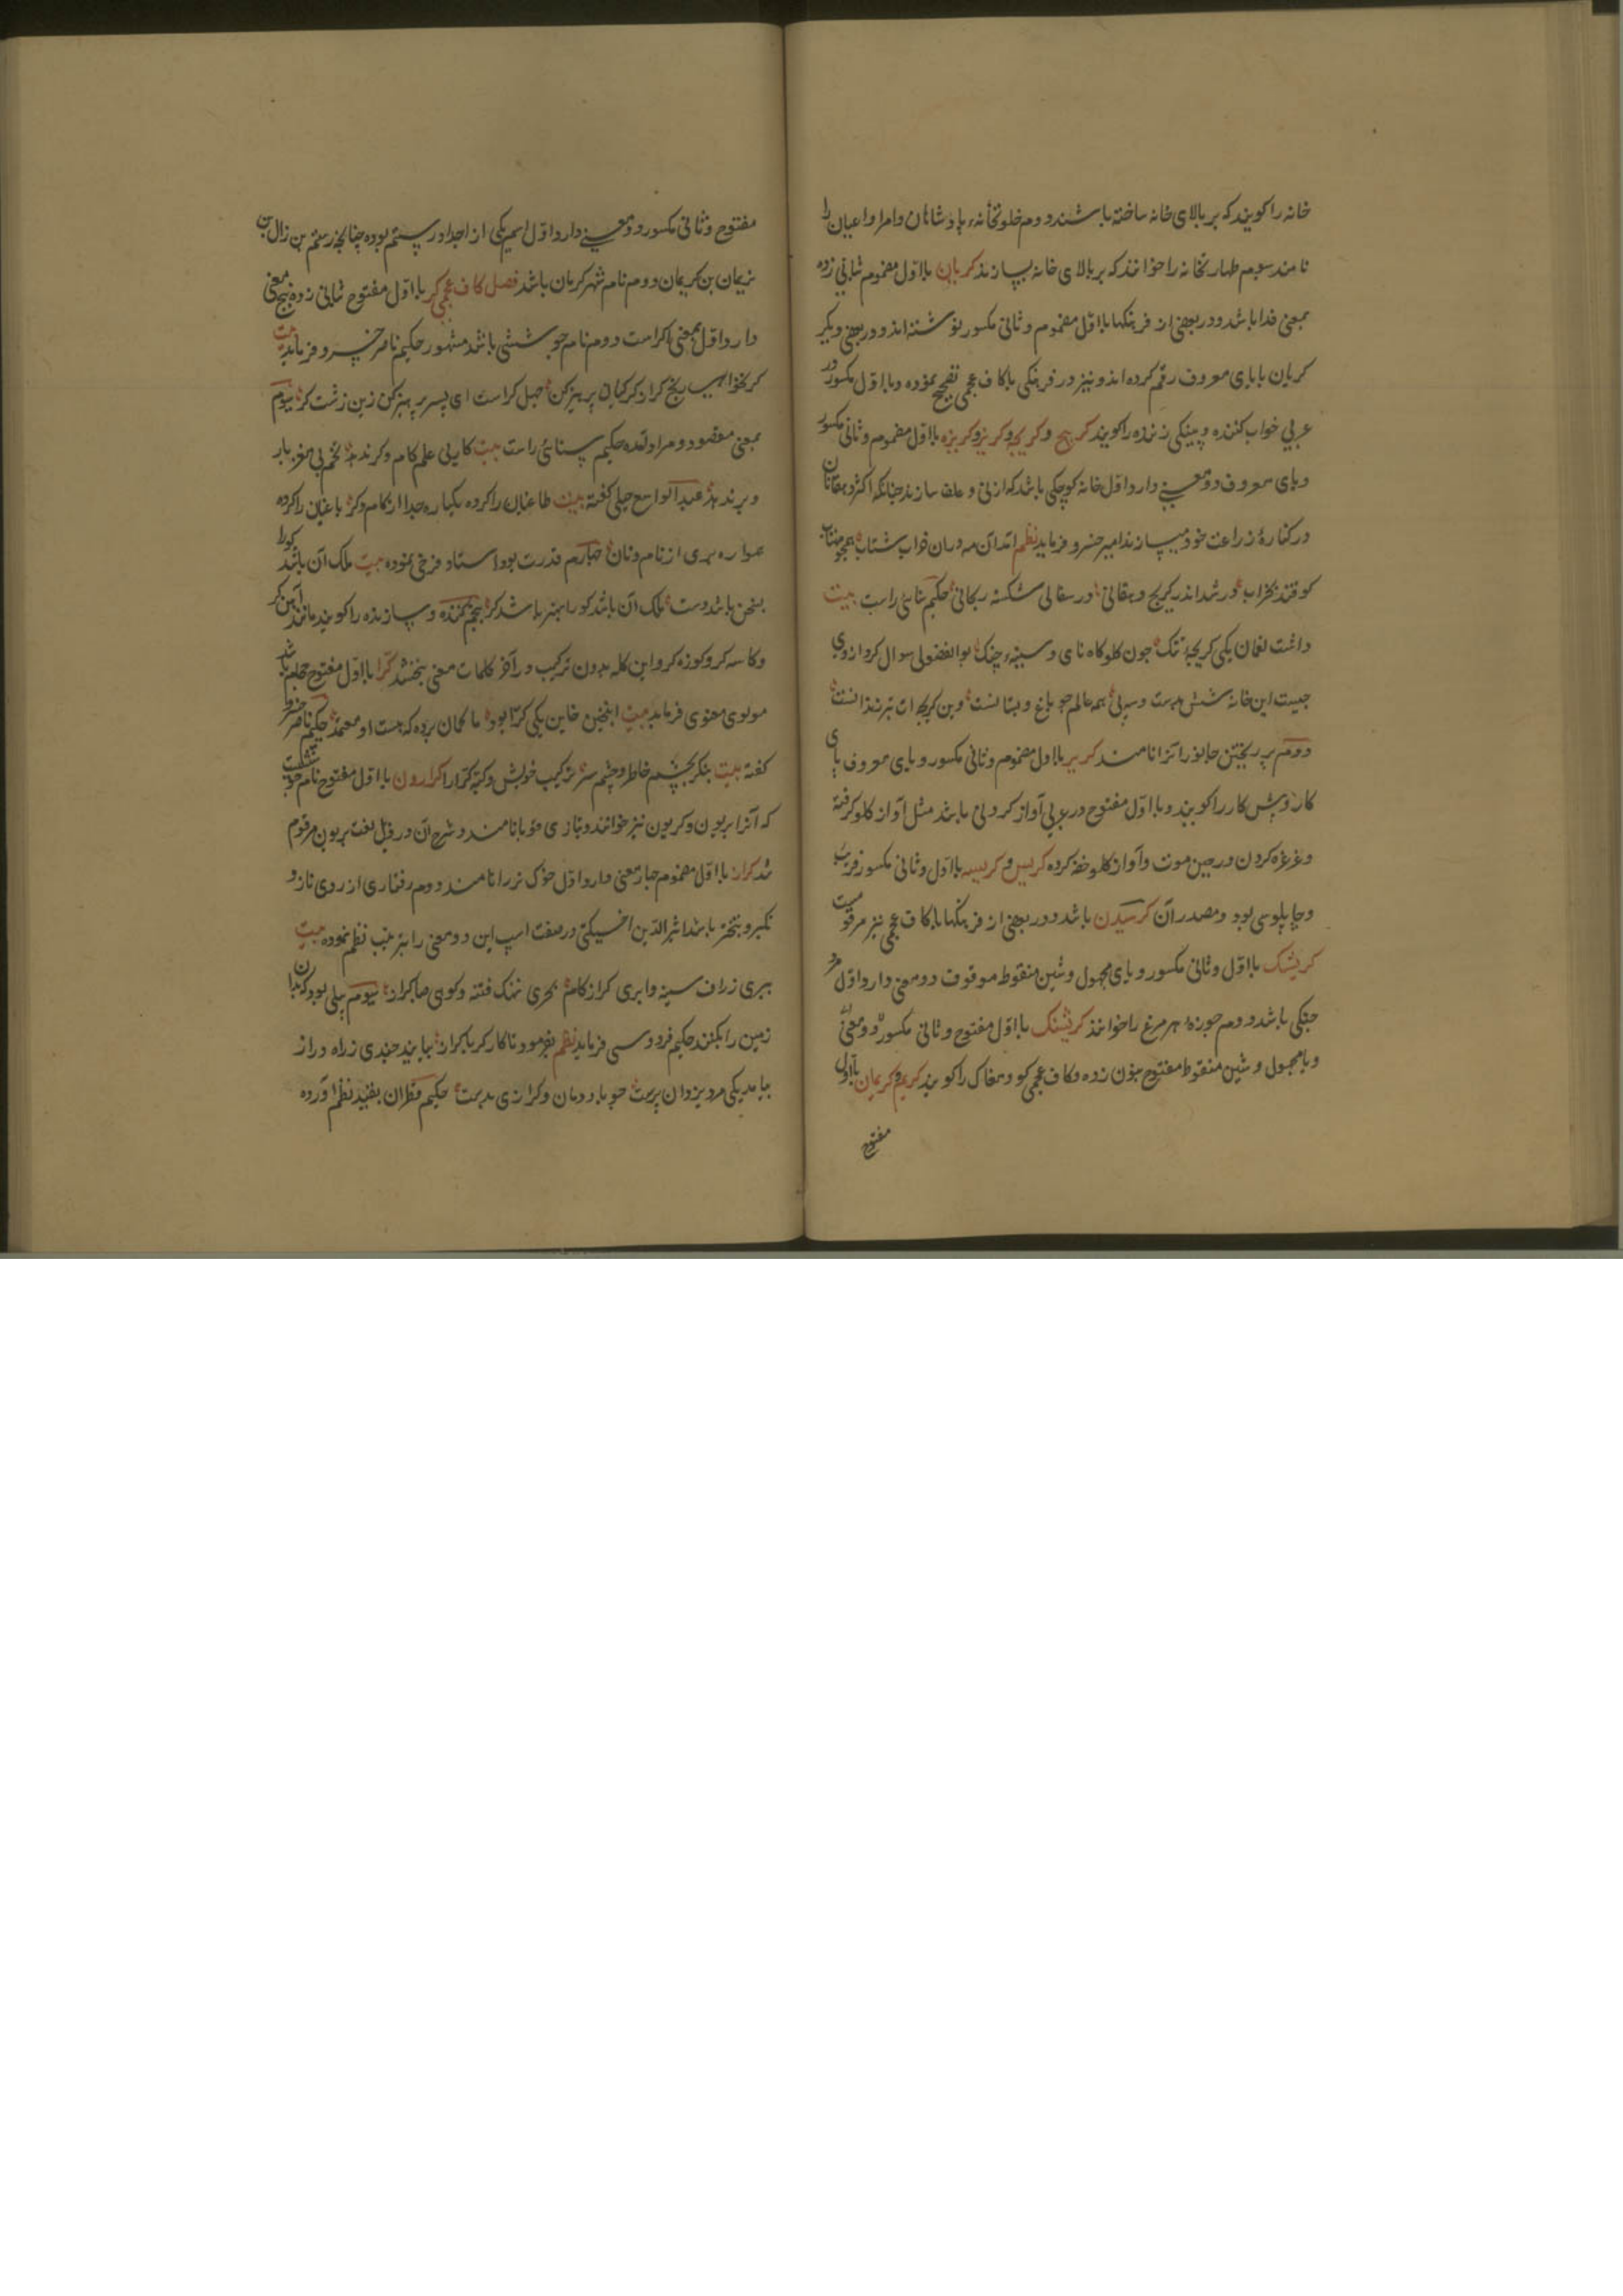 خانه را کویند که بر بالای خانه ساخته باشند دوم خلوتخانهٔ پادشاهان و امرا و اعیان را
نامند سوم طهارتخانه را خوانند که بر بالای خانه بسازند کریان بااول مضموم ثانی زده
بمعنی فدا باشد و در بعضی از فرهنکها بااول مضموم و ثانی مکسور نوشته اند و در بعضی دیکر
کریان بایای معروف رقم کرده اند و نیز در فرهنکی باکاف عجمی تصحیح نموده و بااول مکسور در
عربی خواب کننده و پینکی زننده را کویند کریج و کریجه و کریز و کریزه بااول مضموم و ثانی مکسور
و یای معروف دو معنی دارد اول خانه کوچکی باشد که از نی و علف سازند چنانکه اکثر دهقانان
در کنارهٔ زراعت خود میسازند امیر خسرو فرماید نظم آمد آن مه دران خواب شتاب همچو مهتاب
کو فتد بخراب ورشد اندر کریج دهقانی در سفالی شکسته ریحانی حکیم سنائی راست بیت
داشت لقمان یکی کریجهٔ تنک چون کلوکاه نای و سینهٔ چنک بوالفضولی سوال کرد از وی
چیست این خانه شش بدست و سه پی همه عالم چو باغ و بستانست وین کریجه ات بتر ز زندانست
دوم پر ریختن جانور را نامند کریر بااول مضموم و ثانی مکسور و یای معروف پای
کار و پیش کار را کویند و بااول مفتوح در عربی آواز کردن باشد مثل آواز کلو کرفته
و غرغره کردن در حین موت و آواز کلو خفه کرده کریس و کریسه بااول و ثانی مکسور فریب
و چاپلوسی بود و مصدر آن کریسیدن باشد و در بعضی از فرهنکها باکاف عجمی نیز مرقومست
کریشک بااول و ثانی مکسور و یای مجهول و شین منقوط موقوف دو معنی دارد اول مرد
جنکی باشد دوم جوزهٔ هر مرغ را خوانند کریشنک بااول مفتوح و ثانی مکسور
و یا مجهول و شین منقوط مفتوح بنون زده و کاف عجمی کو و مغاک را کویند کریم و کریمان بااول
مفتوح
مفتوح و ثانی مکسور دو معنی دارد اول اسم یکی از اجداد رستم بوده چنانچه رستم بن زال بن
نریمان بن کریمان دوم نام شهر کرمان باشد فصل کاف عجمی کر بااول مفتوح ثانی زده پنج معنی
دارد اول بمعنی اکر است دوم نام جوششی باشد مشهور حکیم ناصر خسرو فرماید بیت
کر نخواهی رنج کر از کرکنان پرهیز کن جهل کر است ای پسر پرهیز کن زین زشت کر سیوم
بمعنی مقصود و مراد آمده حکیم سنائی راست بیت کار بی علم کام و کر ندهد تخم بی مغز بار
و بر ندهد عبدالواسع جبلی کفته بیت طاغیان را کرده یکباره جدا از کام و کر باغیان را کرده
همواره بری از نام و نان چهارم قدرت بود استاد فرخی نموده بیت ملک آن باشد کو را
بسخن باشد دست ملک آن باشد کو را بهنر باشد کر پنجم کننده و سازنده را کویند مانند آهن کر
و کاسه کر و کوزه کر و این کلمه بدون ترکیب در آخر کلمات معنی نبخشد کرا بااول مفتوح حجام باشد
مولوی معنوی فرماید بیت اینچنین خاین یکی کرا بود ما کمان برده که هست او معتمد حکیم ناصر خسرو
کفته بیت بنکر بچشم خاطر و چشم سر ترکیب خویش و کنبد کرا را کرارون بااول مفتوح نام جوششیست
که آنرا بریون و کریون نیز خوانند و بتازی قوبا نامند و شرح آن در ذیل لغت بریون مرقوم
شد کراز بااول مضموم چهار معنی دارد اول خوک نر را نامند دوم رفتاری از روی ناز و
تکبر و تبختر باشد اثیرالدین اخسیکتی در صفت اسپ این دو معنی را بترتیب نظم نموده بیت
ببری زراف سینه و ابری کراز کام بحری نهنک فتنه و کوهی صبا کراز سیوم بیلی بود که بدان
زمین را بکنند حکیم فردوسی فرماید نظم بفرمود تا کارکر با کراز بیایند چندی ز راه دراز
بیامد یکی مرد یزدان پرست چو باد دمان و کرازی بدست حکیم قطران بقید نظم آورده